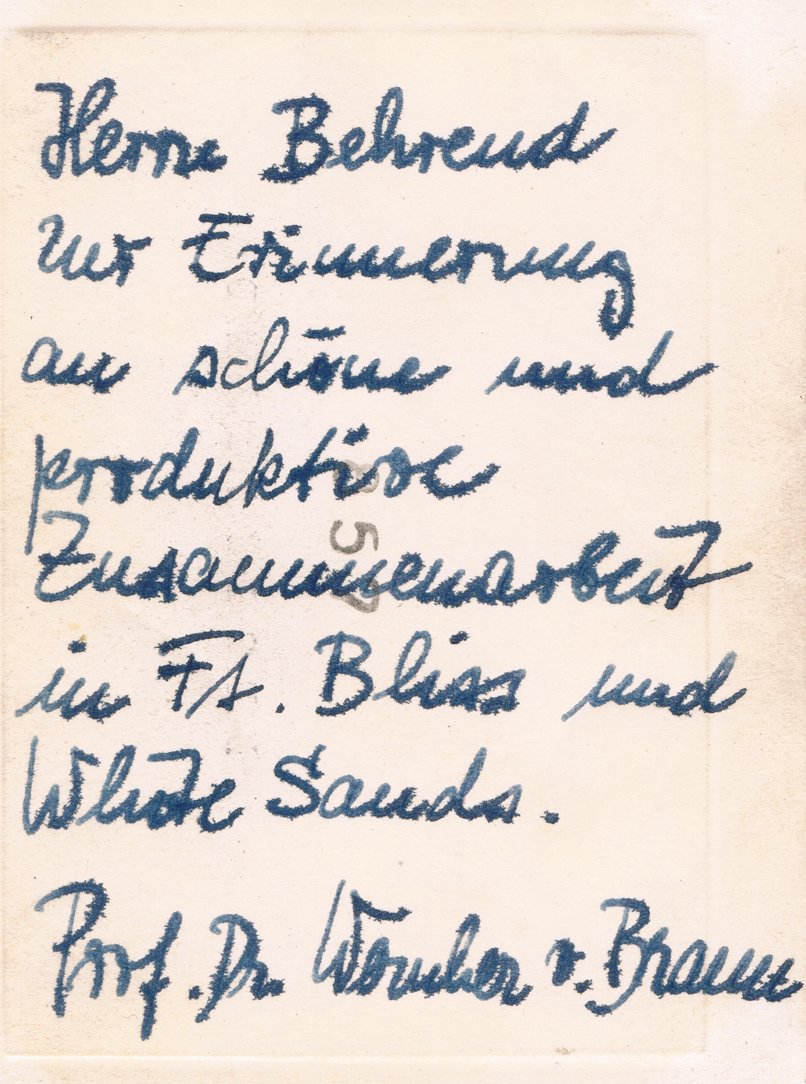 Herrn Behrend
zur Erinnerung
an schöne und
produktive
Zusammenarbeit
in Ft. Bliss und
White Sands.
Prof. Dr. Wernher v. Braun